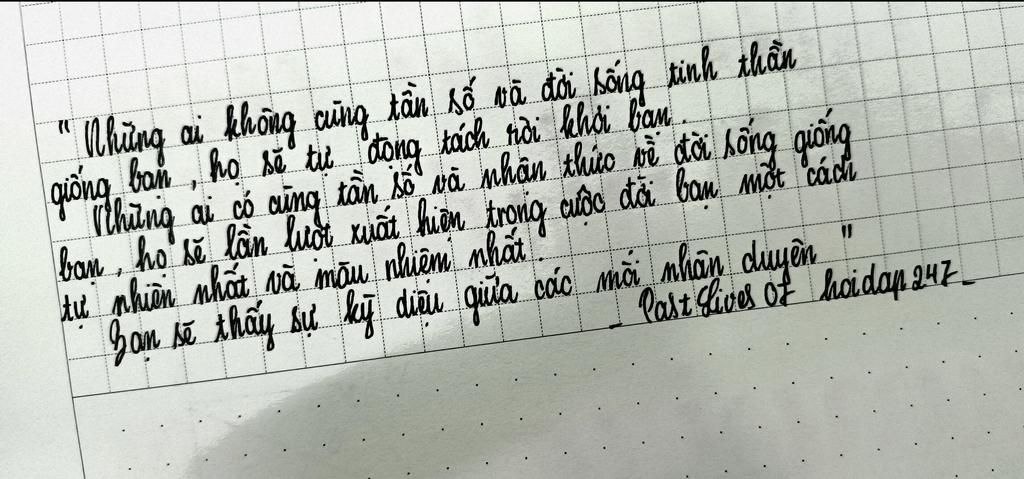 "Những ai không cùng tần số và đời sống tinh thần
giống bạn, họ sẽ tự động tách rời khỏi bạn.
Những ai có cùng tần số và nhân thức về đời sống giống
bạn, họ sẽ lần lượt xuất hiện trong cuộc đời bạn một cách
tự nhiên nhất và mầu nhiệm nhất.
Bạn sẽ thấy sự kỹ diệu giữa các mối nhân duyên"
- Past Lives Of hoidap247 -